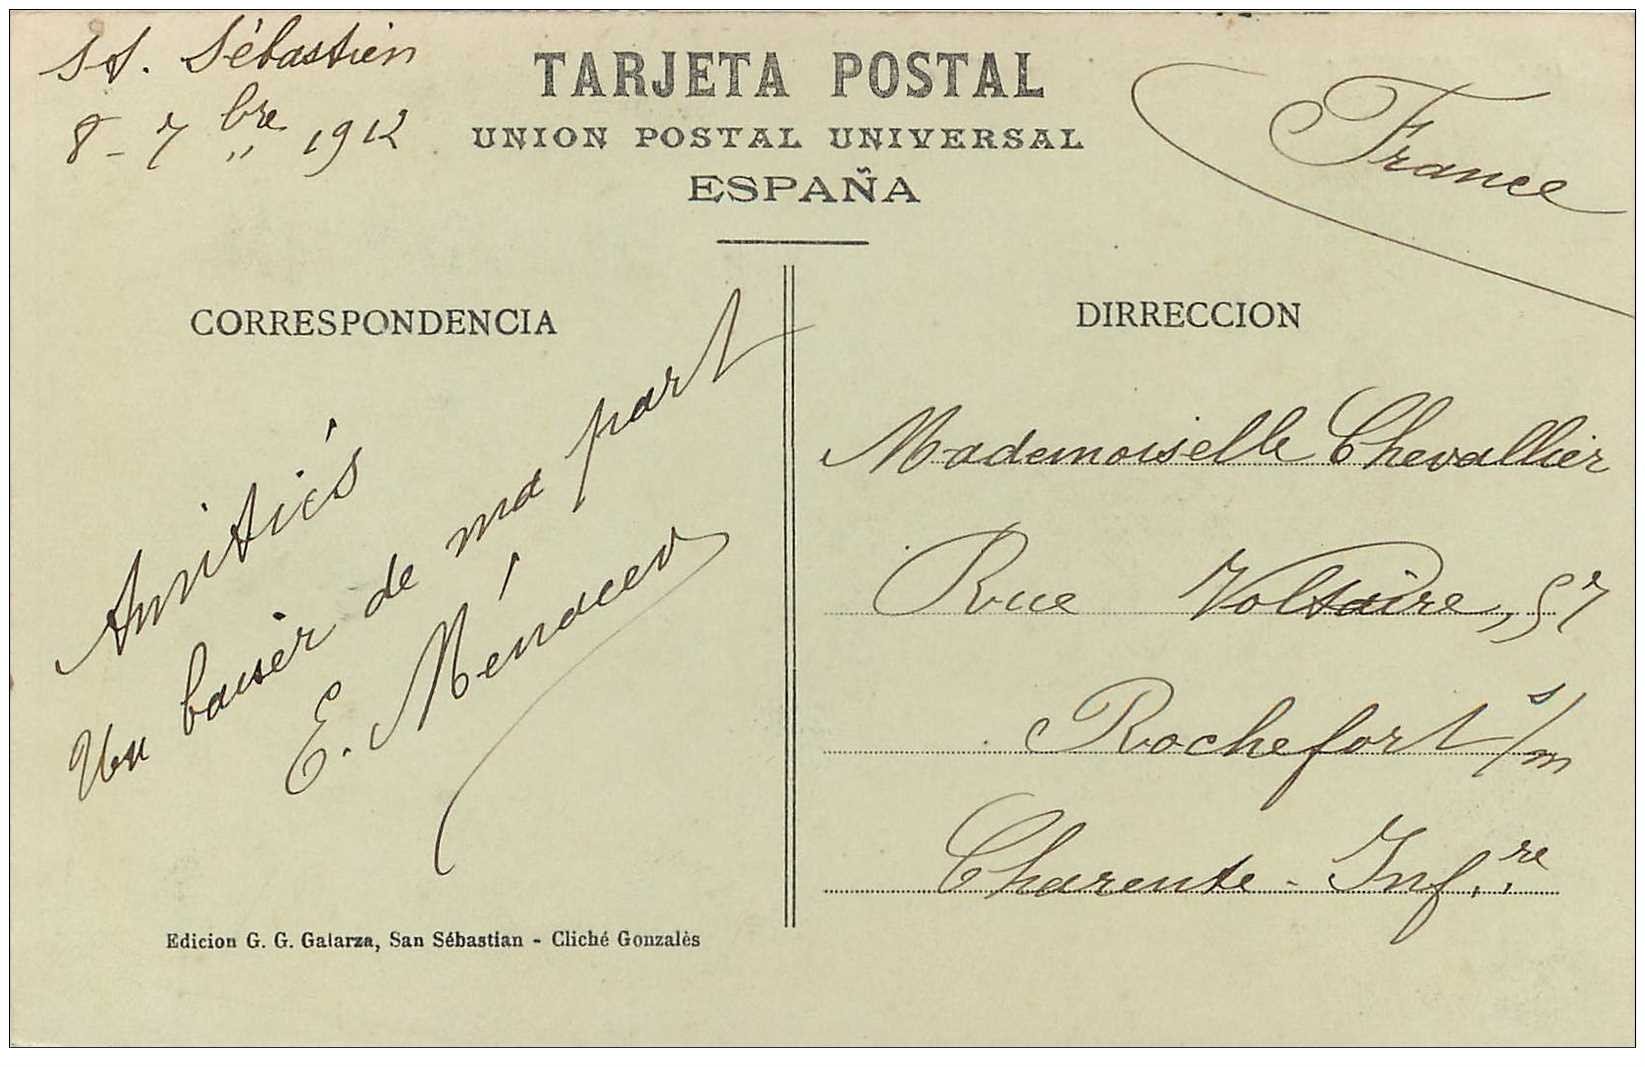 St. Sébastien
8 - 7bre 1912
TARJETA POSTAL
UNION POSTAL UNIVERSAL
ESPAÑA
France
CORRESPONDENCIA
Amitiés
Un baiser de ma part
E.
Edicion G. G. Galarza, San Sébastian - Cliché Gonzalès
DIRRECCION
Mademoiselle Chevallier
Rue Voltaire, 57
Rochefort s/m
Charente - Inf.re